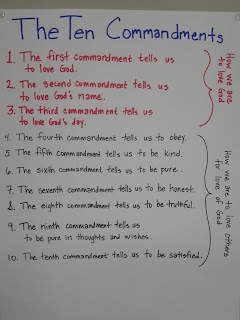 The Ten Commandments
1. The first commandment tells us
to love God.
2. The second commandment tells us
to love God's name.
3. The third commandment tells us
to love God's day.
How we are
to love God
4. The fourth commandment tells us to obey.
5. The fifth commandment tells us to be kind.
6. The sixth commandment tells us to be pure.
7. The seventh commandment tells us to be honest.
8. The eighth commandment tells us to be truthful.
9. The ninth commandment tells us
to be pure in thoughts and wishes.
10. The tenth commandment tells us to be satisfied.
How we are to love others
for love of God